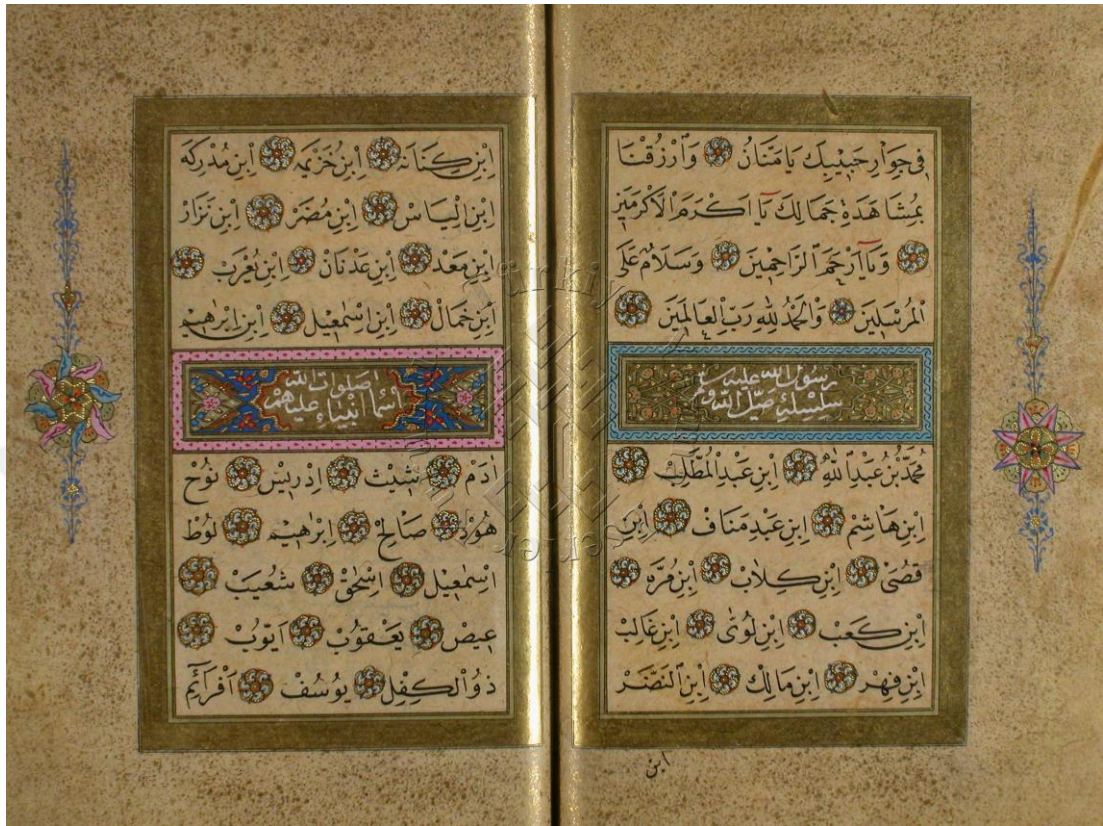 فِى جَوَارِ حَبِيْبِكَ يَا مَنَّانُ وَارْزُقْنَا
بِمُشَاهَدَةِ جَمَالِكَ يَا اَكْرَمَ الْاَكْرَمِيْنَ
وَيَا اَرْحَمَ الرَّاحِمِيْنَ وَسَلَامٌ عَلَى
الْمُرْسَلِيْنَ وَالْحَمْدُ لِلّٰهِ رَبِّ الْعَالَمِيْنَ
رسول الله عليه
سلسلۀ صلى الله و
مُحَمَّدُ بْنُ عَبْدِ اللهِ اِبْنِ عَبْدِ الْمُطَّلِبْ
اِبْنِ هَاشِمْ اِبْنِ عَبْدِ مَنَافْ اِبْنِ
قُصَىّْ اِبْنِ كِلَابْ اِبْنِ مُرَّه
اِبْنِ كَعَبْ اِبْنِ لُؤَىْ اِبْنِ غَالِبْ
اِبْنِ فِهِرْ اِبْنِ مَالِكْ اِبْنِ النَّضَرْ
ابن
اِبْنِ كِنَانَه اِبْنِ خُزَيْمَه اِبْنِ مُدْرِكَه
اِبْنِ اِلْيَاسْ اِبْنِ مُضَرْ اِبْنِ نَزَارْ
اِبْنِ مَعَدْ اِبْنِ عَدْنَانْ اِبْنِ يَعْرَبْ
اِبْنِ حَمَالْ اِبْنِ اِسْمٰعِيْل اِبْنِ اِبْرٰهِيْم
صلوات الله
اسماء انبياء عليهم
اٰدَمْ شِيْثْ اِدْرِيْسْ نُوْحْ
هُوْدْ صَالِحْ اِبْرٰهِيْم لُوطْ
اِسْمٰعِيْل اِسْحٰقْ شُعَيْبْ
عِيصْ يَعْقُوْبْ اَيُّوْبْ
ذُو الْكِفِلْ يُوسُفْ اَفْرَائِمْ